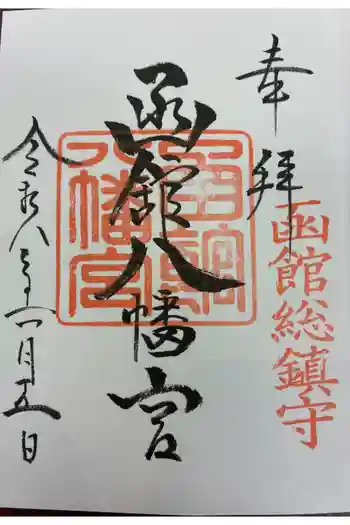 奉拝
函館総鎮守
函館八幡宮
函館
八幡宮
令和八年一月五日